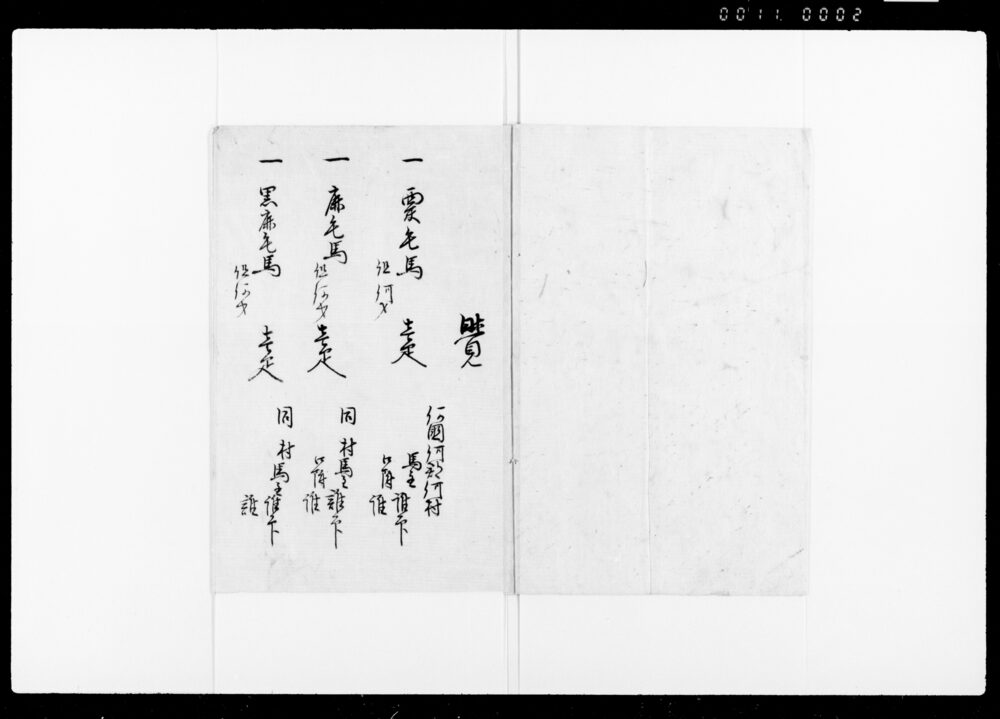 0011 0002
覺
一 栗毛馬 但何才 壱疋
何國何郡何村
馬主 誰印
誰
一 鹿毛馬 但何才 壱疋
同村馬主誰印
誰
一 黒鹿毛馬 但何才 壱疋
同村馬主誰印
誰